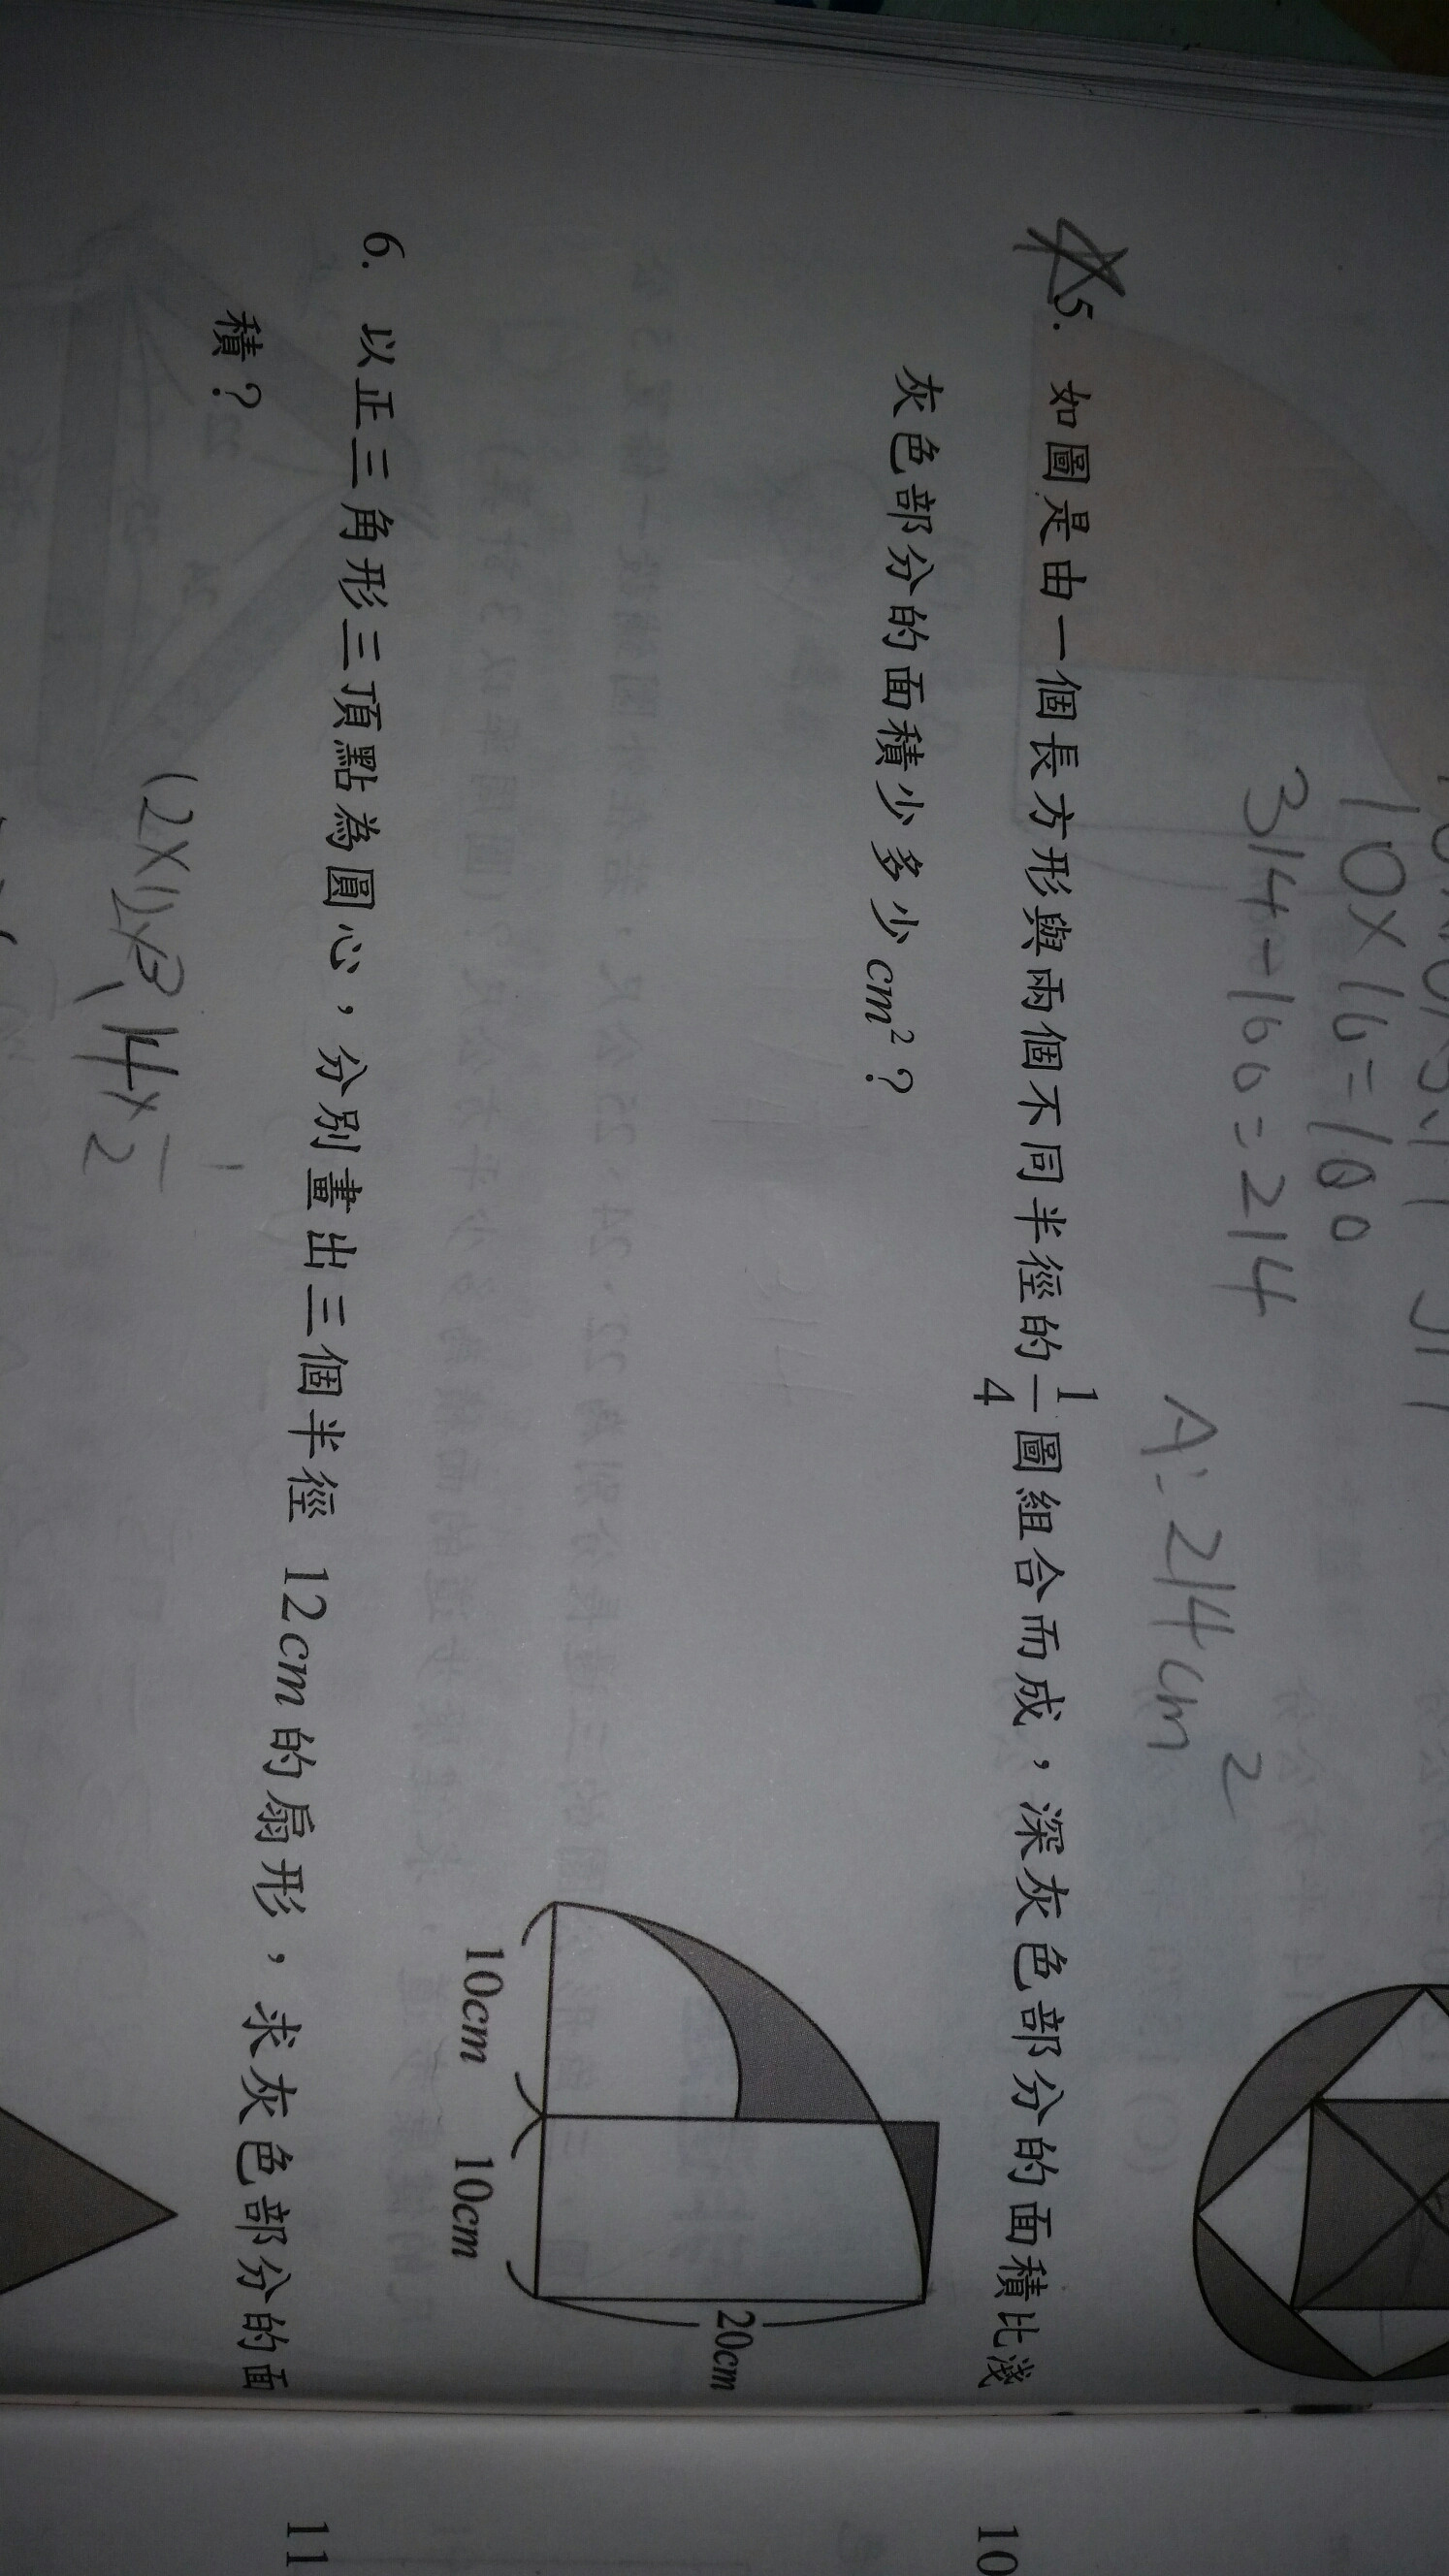 10×10=100
314-100=214
A:214cm²
5. 如圖是由一個長方形與兩個不同半徑的1/4圖組合而成，深灰色部分的面積比淺
灰色部分的面積少多少cm²？
10cm
10cm
20cm
6. 以正三角形三頂點為圓心，分別畫出三個半徑 12cm的扇形，求灰色部分的面
積？
10
11